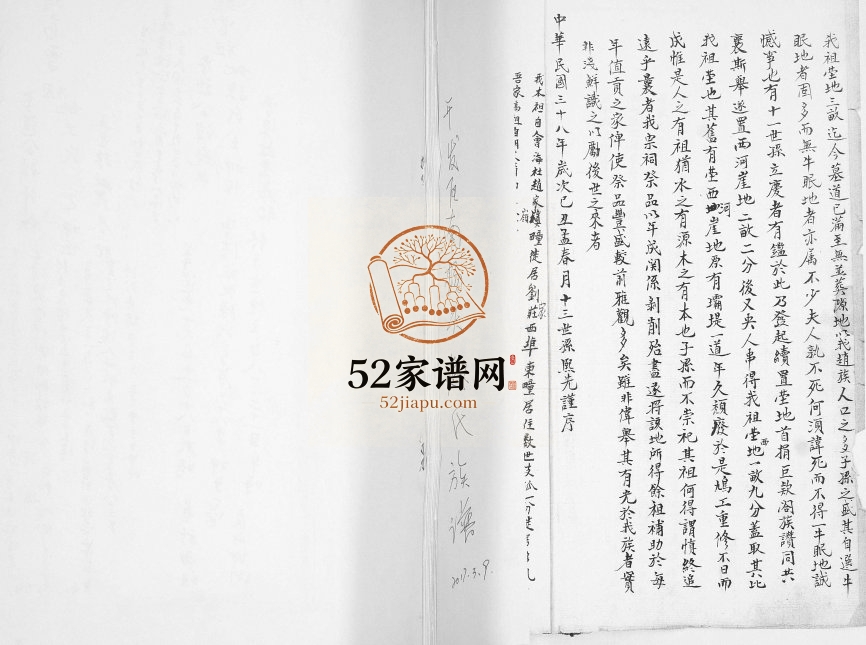 我祖塋地三畝迄今墓道已滿至無並葬隙地以我趙族人口之多子孫之盛其自選牛
眠地者固多而無牛眠地者亦屬不少夫人孰不死何須諱死而不得一牛眠地誠
憾事也有十一世孫立慶者有鑑於此乃發起續置塋地首捐巨欸閤族讚同共
襄斯舉遂置西河崖地二畝二分後又央人串得我祖塋西地一畝九分蓋取其比
我祖塋也其舊有塋西河崖地原有壩堤一道年久頹廢於是鳩工重修不日而
成惟是人之有祖猶水之有源木之有本也子孫而不崇祀其祖何得謂慎終追
遠乎曩者我宗祠祭品以年成関係剥削殆盡遂將該地所得餘租補助於每
年值貢之家俾使祭品豐盛較前雅觀多矣雖非偉舉其有光於我族者實
非淺鮮識之以勵後世之來者
中華民國三十八年歲次己丑孟春月十三世孫熙先謹序
我本祖自會海社趙家疃徙居劉家莊西埠東疃居住數世支派一分
吾家高祖自
氏族譜
2017.3.9.
52家谱网
52jiapu.com